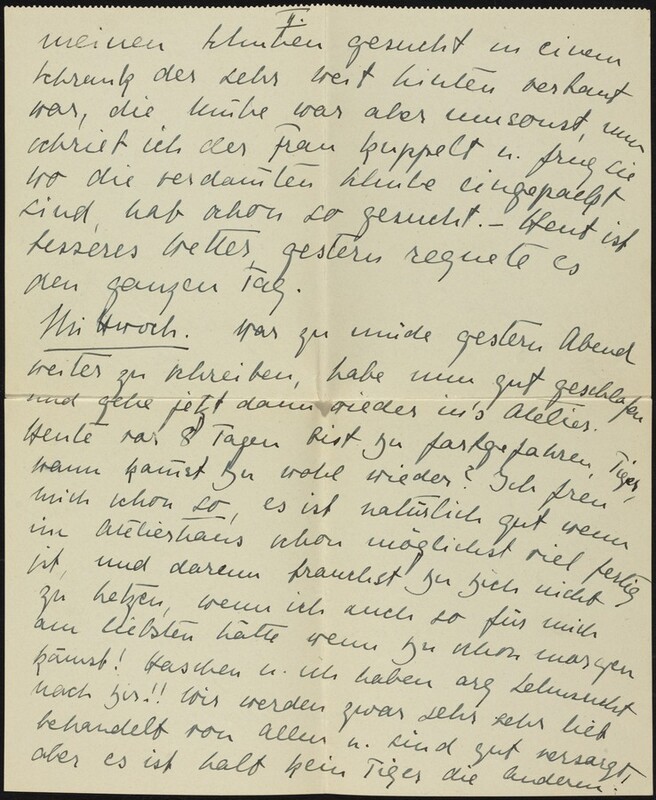 II.
meinen Schuhen gesucht in einem
Schrank der sehr weit hinten verbaut
war, die Mühe war aber umsonst, nun
schrieb ich der Frau Kuppelt u. frug sie
wo die verdamten Schuhe eingepackt
sind, hab schon so gesucht. – Heut ist
besseres Wetter, gestern regnete es
den ganzen Tag.
Mittwoch. War zu müde gestern Abend
weiter zu schreiben, habe nun gut geschlafen
und gehe jetzt dann wieder in's Atelier.
Heute vor 8 Tagen bist Du fortgefahren, Tiger,
wann kamst Du wohl wieder? Ich freu'
mich schon so, es ist natürlich gut wenn
im Atelierhaus schon möglichst viel fertig
ist, und darum brauchst Du Dich nicht
zu hetzen, wenn ich auch so für mich
am liebsten hätte wenn Du schon morgen
kämst! Haschen u. ich haben arg Sehnsucht
nach Dir!! Wir werden zwar sehr sehr lieb
behandelt von allen u. sind gut versorgt,
aber es ist halt kein Tiger die anderen!